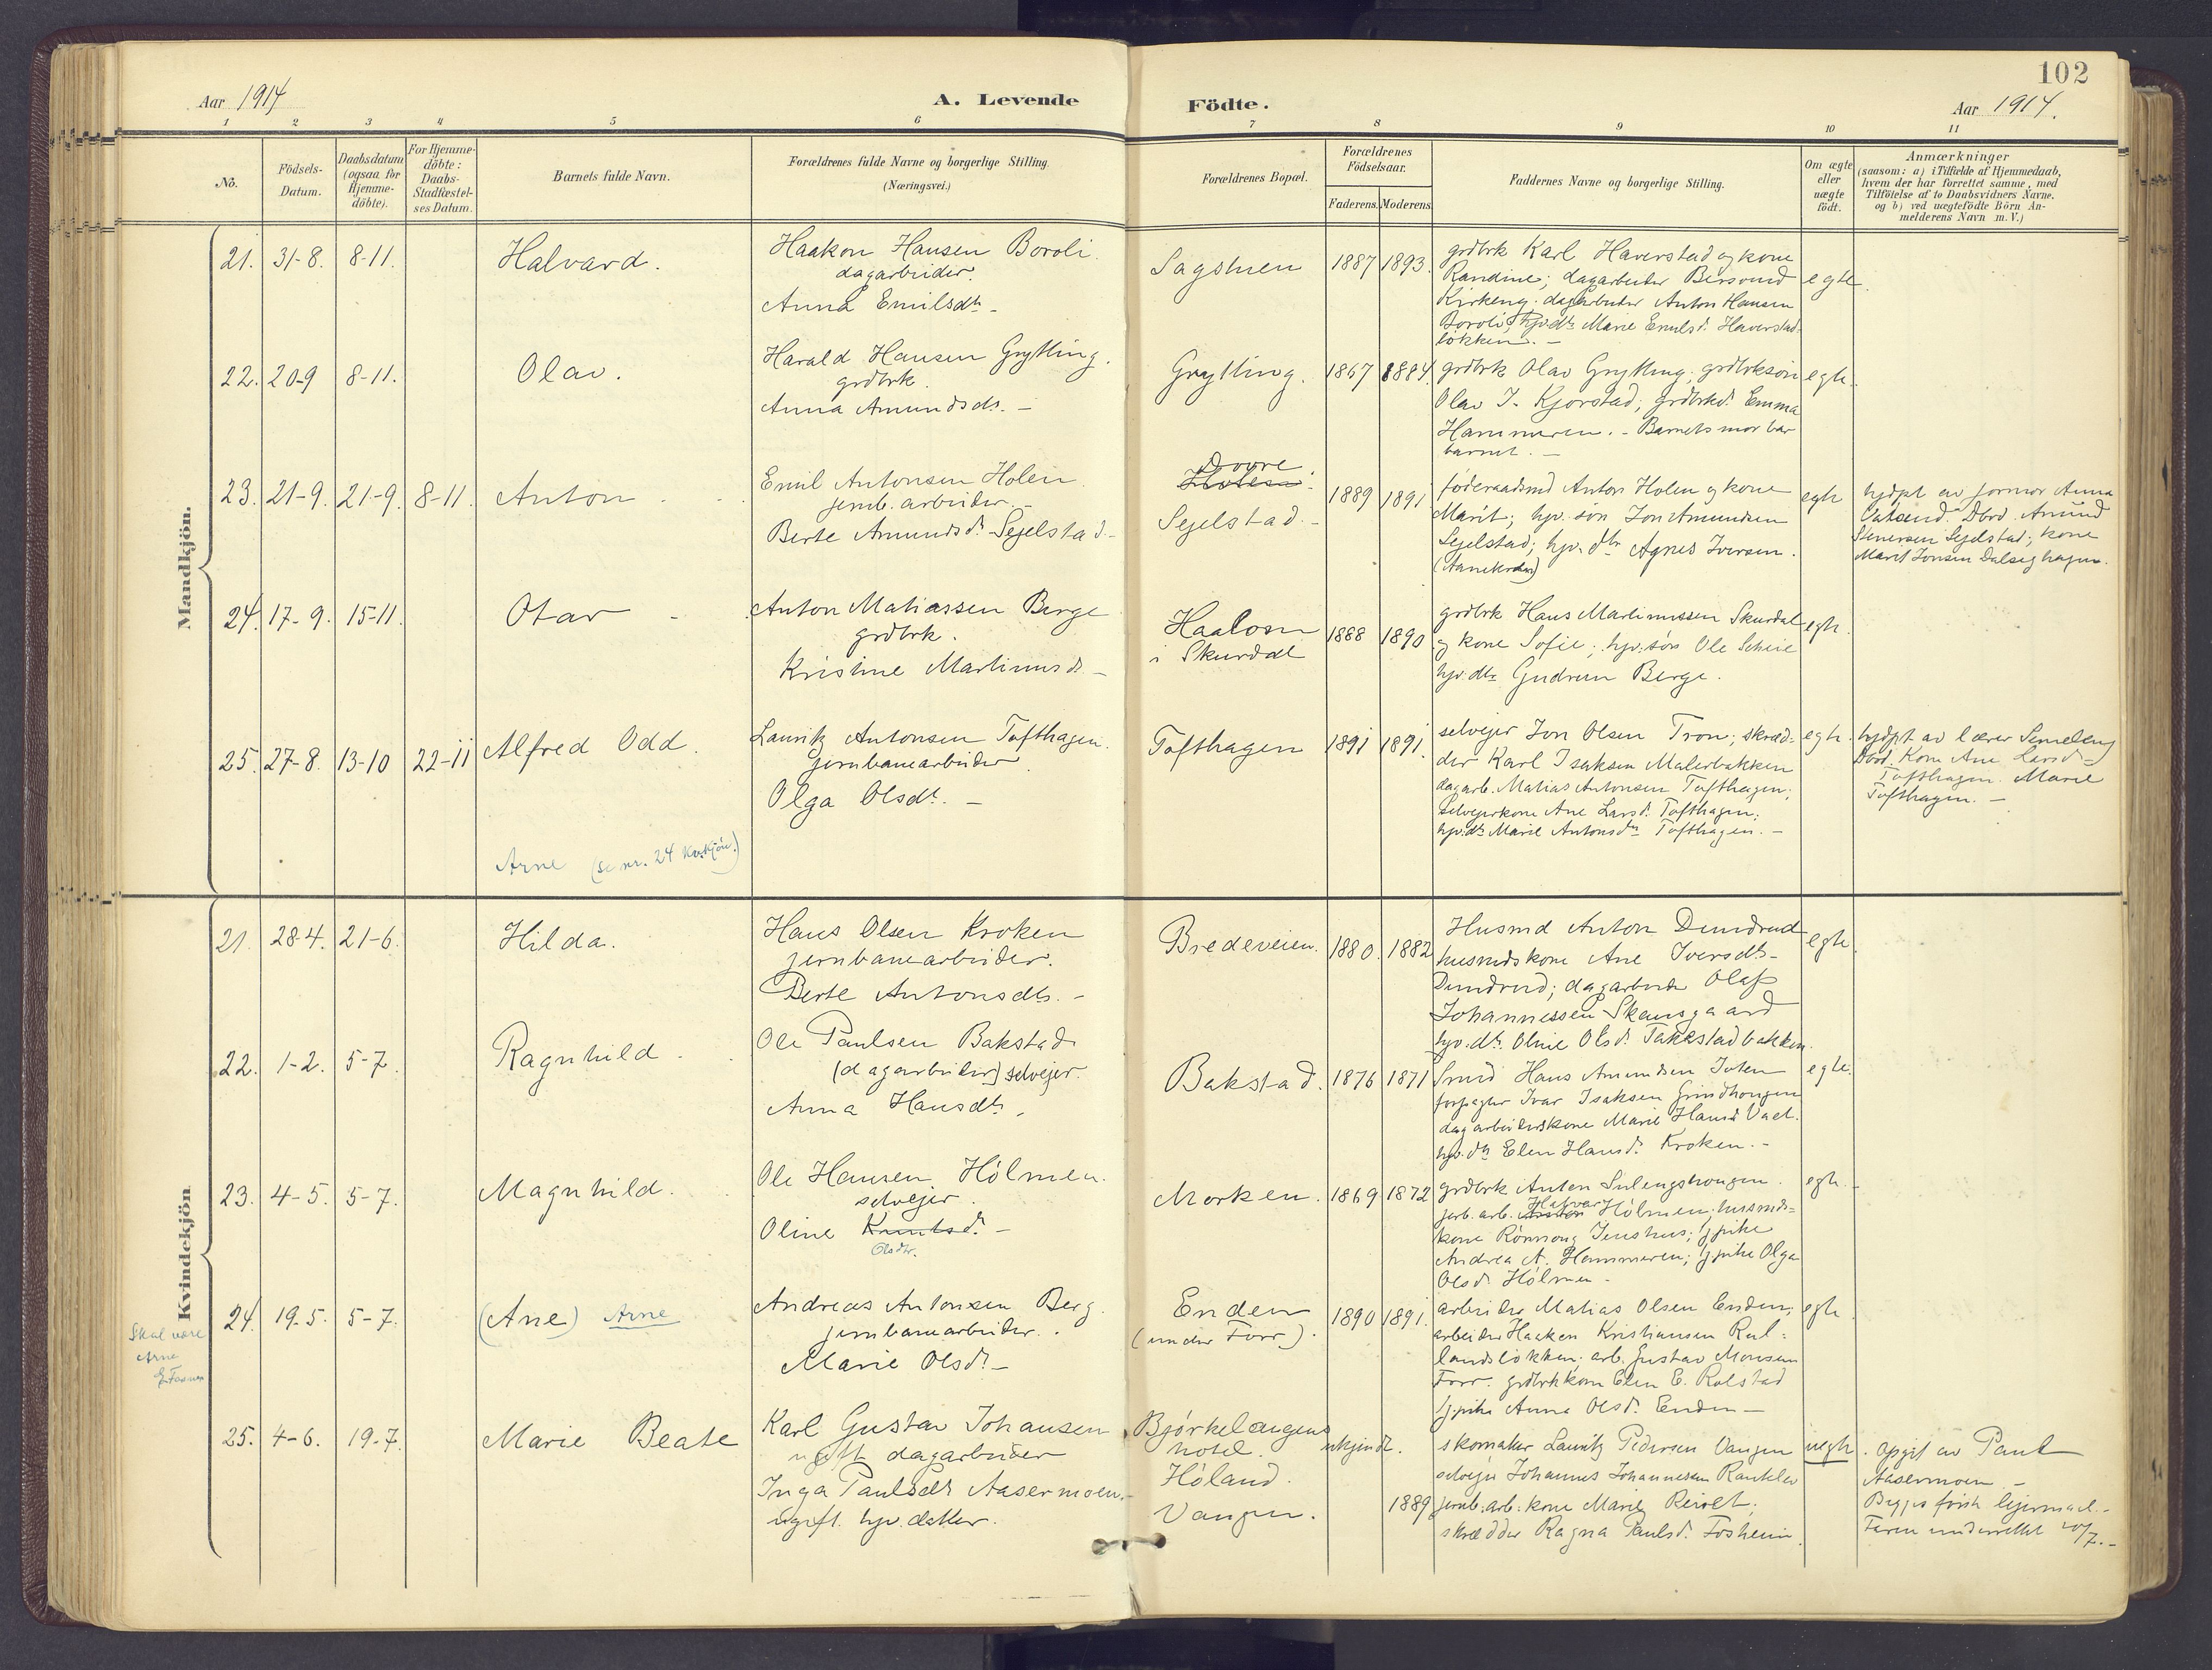 102
Aar 1914
A. Levende
Födte.
Aar 1914.
1 2 3 4 5 6 7 8 9 10 11
No.
Födsels-
Datum.
Daabsdatum
(ogsaa for
Hjemme-
döbte).
For Hjemme-
döbte:
Daabs-
Stadfæstel-
ses Datum.
Barnets fulde Navn.
Forældrenes fulde Navne og borgerlige Stilling.
(Næringsvei.)
Forældrenes Bopæl.
Forældrenes
Födselsaar.
Faderens. Moderens.
Faddernes Navne og borgerlige Stilling.
Om ægte
eller
uægte
födt.
Anmærkninger
(saasom: a) i Tilfælde af Hjemmedaab,
hvem der har forrettet samme, med
Tilföielse af to Daabsvidners Navne.
og b) ved uægtefödte Börn An-
melderens Navn m. V.)
Mandkjön.
21. 31-8. 8-11.
Halvard.
Haakon Hansen Boroli.
dagarbeider.
Anna Emilsdtr. -
Sagstuen
1887 1893.
grdbrk Karl Haverstad og kone
Randine; dagarbeider Bersvend
Kirkeng. dagarbeider Anton Hansen
Boroli, hjv.dtr Marie Emilsd. Haverstad-
løkken. -
egte.
22. 20-9 8-11.
Olav.
Harald Hansen Grytting.
grdbrk.
Anna Amundsdr. -
Grytting.
1867 1884.
grdbrk Olav Grytting, grdbrksøn
Olav J. Kjorstad; grdbrkd. Emma
Hammeren. - Barnets mor bar
barnet. -
egte.
23. 21-9. 21-9. 8-11.
Anton
Emil Antonsen Holen.
jernb.arbeider. -
Berte Amundsd. Sejelstad -
Dovre
Holen.
Sejelstad. -
1889 1891
føderaadsmd Anton Holen og kone
Marit; hjv. søn Jon Amundsen
Sejelstad; hjv. dtr Agnes Iversen.
egte
hjdpt av jormor Anna
Kone
Marit Jonsen Dalseghagen.
24. 17-9. 15-11.
Otar
Anton Matiassen Berge
grdbrk.
Kristine Martinusd. -
Haalosn
i Skurdal
1888 1890
grdbrk Hans Martinussen Skurdal
og kone Sofie; hjv. søn Ole Scheie
hjv. dtr. Gudrun Berge.
egte.
25. 27-8. 13-10 22-11
Alfred Odd.
Lauritz Antonsen Tofthagen.
jernbanearbeider.
Olga Olsdt. -
Tofthagen
1891 1891.
selvejer Jon Olsen Tron; skræd-
der Karl Isaksen Malerbakken
dagarb. Matias Antonsen Tofthagen;
selvejerkone Ane Larsd. Tofthagen;
hjv. dtr Marie Antonsdtr Tofthagen. -
egte.
hjdpt av lærer Semeleng
Dbvd. Kone Ane Larsd -
Tofthagen. Marie
Tofthagen. -
Arne (se nr. 24 Kv.kjøn.)
Kvindekjön
21. 28-4. 21-6.
Hilda.
Hans Olsen Kroken
jernbanearbeider.
Berte Antonsdtr. -
Bredeveien.
1880. 1882
Husmd Anton Dundrud
husmdskone Ane Iversdtr -
Dundrud; dagarbeider Olaf
Johannessen Skansgaard
hjv. dtr. Oline Olsd. Takkstadbakken.
egte.
22. 1-2. 5-7.
Ragnhild.
Ole Paulsen Bakstad
(dagarbeider) selvejer.
Anna Hansdtr.
Bakstad.
1876 1871
Smed Hans Amundsen Joten
forpagter Ivar Isaksen Grindhougen
dagarbeiderskone Marie Hansd Vael.
hjv. dtr Elen Hansd. Kroken. -
egte.
23. 4-5. 5-7.
Magnhild.
Ole Hansen Hólmen.
selvejer.
Oline Knutsd. -
Olsdtr.
Morken.
1869. 1872
grdbrk Anton Sulengshougen.
jerb. arb. Halvar Hólmen; husmds-
kone Rønnaug Jenshus; gpike
Andrea A. Hammeren; gpike Olga
Olsd. Hólmen -
egte.
24. 19-5. 5-7.
(Ane) Arne
Skal være
Arne
Andreas Antonsen Berg.
jernbanearbeider.
Marie Olsd. -
Enden
(under Forr).
1890 1891.
arbeider Matias Olsen Enden;
arbeider Haaken Kristiansen Rul-
landsløkken; arb. Gustav Monsen
Forr. grdbrkkone Elen E. Rolstad
gpike Anna Olsd. Enden -
egte.
25. 4-6. 19-7.
Marie Beate
Karl Gustav Johansen
ugift dagarbeider
Inga Paulsdtr Aasermoen. -
ugift. hjv. datter.
Bjørkelangens
hotel.
Höland.
Vangen.
ukjendt.
1889
skomaker Lauritz Pedersen Vangen
selvejer Johannes Johannessen Rankleiv
jernb. arb. kone Marie Reivet;
skrædder Ragna Paulsd. Fosheim.
uegte.
Opgit av Paul
Aasermoen -
Begges første leiermaal. -
Faren underrettet 20/7. -